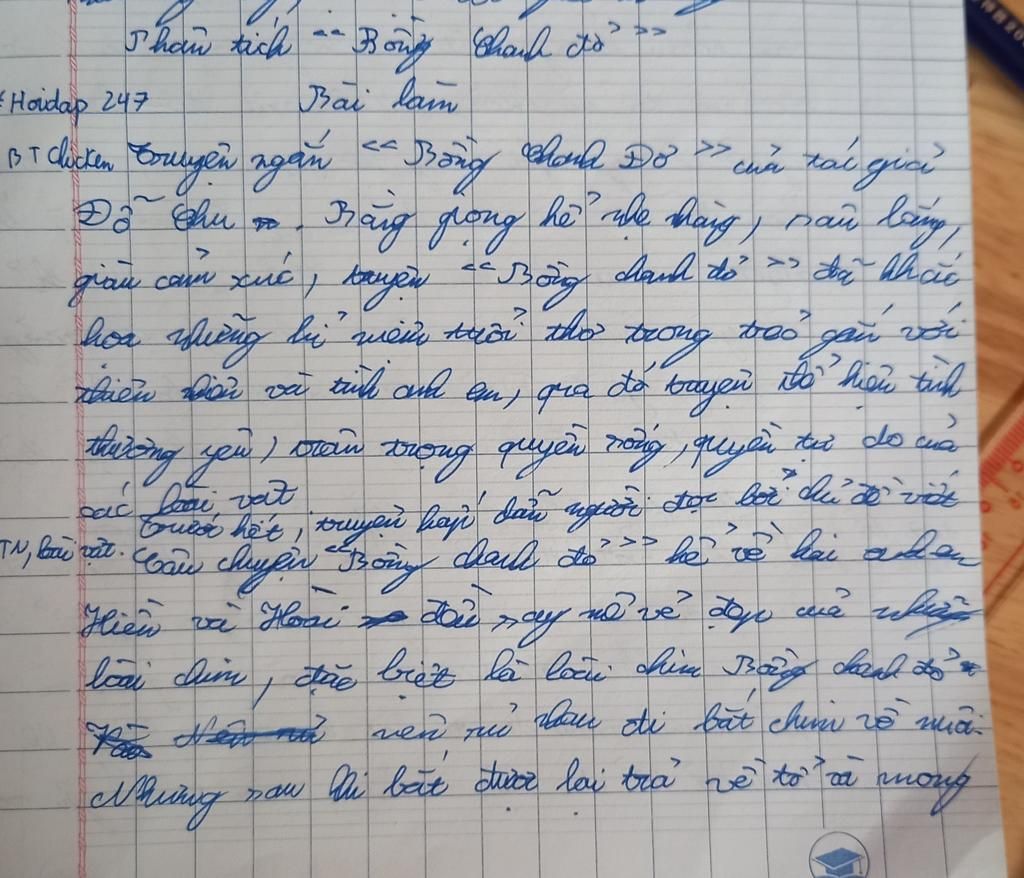 Phân tích << Bồng chanh đỏ >>
Hoidap 247 Bài làm
BT Chicken Truyện ngắn << Bồng Chanh Đỏ >> của tác giả
Đỗ Chu . Bằng giọng kể nhẹ nhàng, sâu lắng,
giàu cảm xúc, truyện << Bồng chanh đỏ >> đã khắc
họa những kỉ niệm tuổi thơ trong trẻo gắn với
thiên nhiên và tình anh em, qua đó truyện thể hiện tình
thương yêu, trân trọng quyền sống, quyền tự do của
các loài vật
Trước hết, truyện hấp dẫn người đọc bởi chủ đề viết
TN, loài vật. Câu chuyện << Bồng chanh đỏ >> kể về hai anh em
Hiền và Hoài đều say mê vẻ đẹp của những
loài chim, đặc biệt là loài chim Bồng chanh đỏ
nên rủ nhau đi bắt chim về nuôi.
Nhưng sau khi bắt được lại trả về tổ và mong